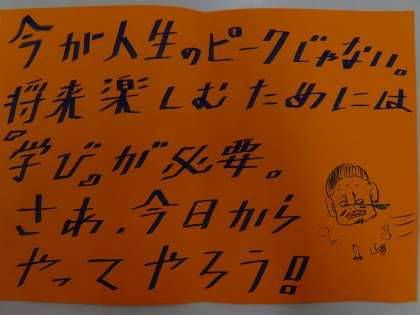 今が人生のピークじゃない。
将来楽しむためには
"学び"が必要。
さあ、今日から
やってやろう!